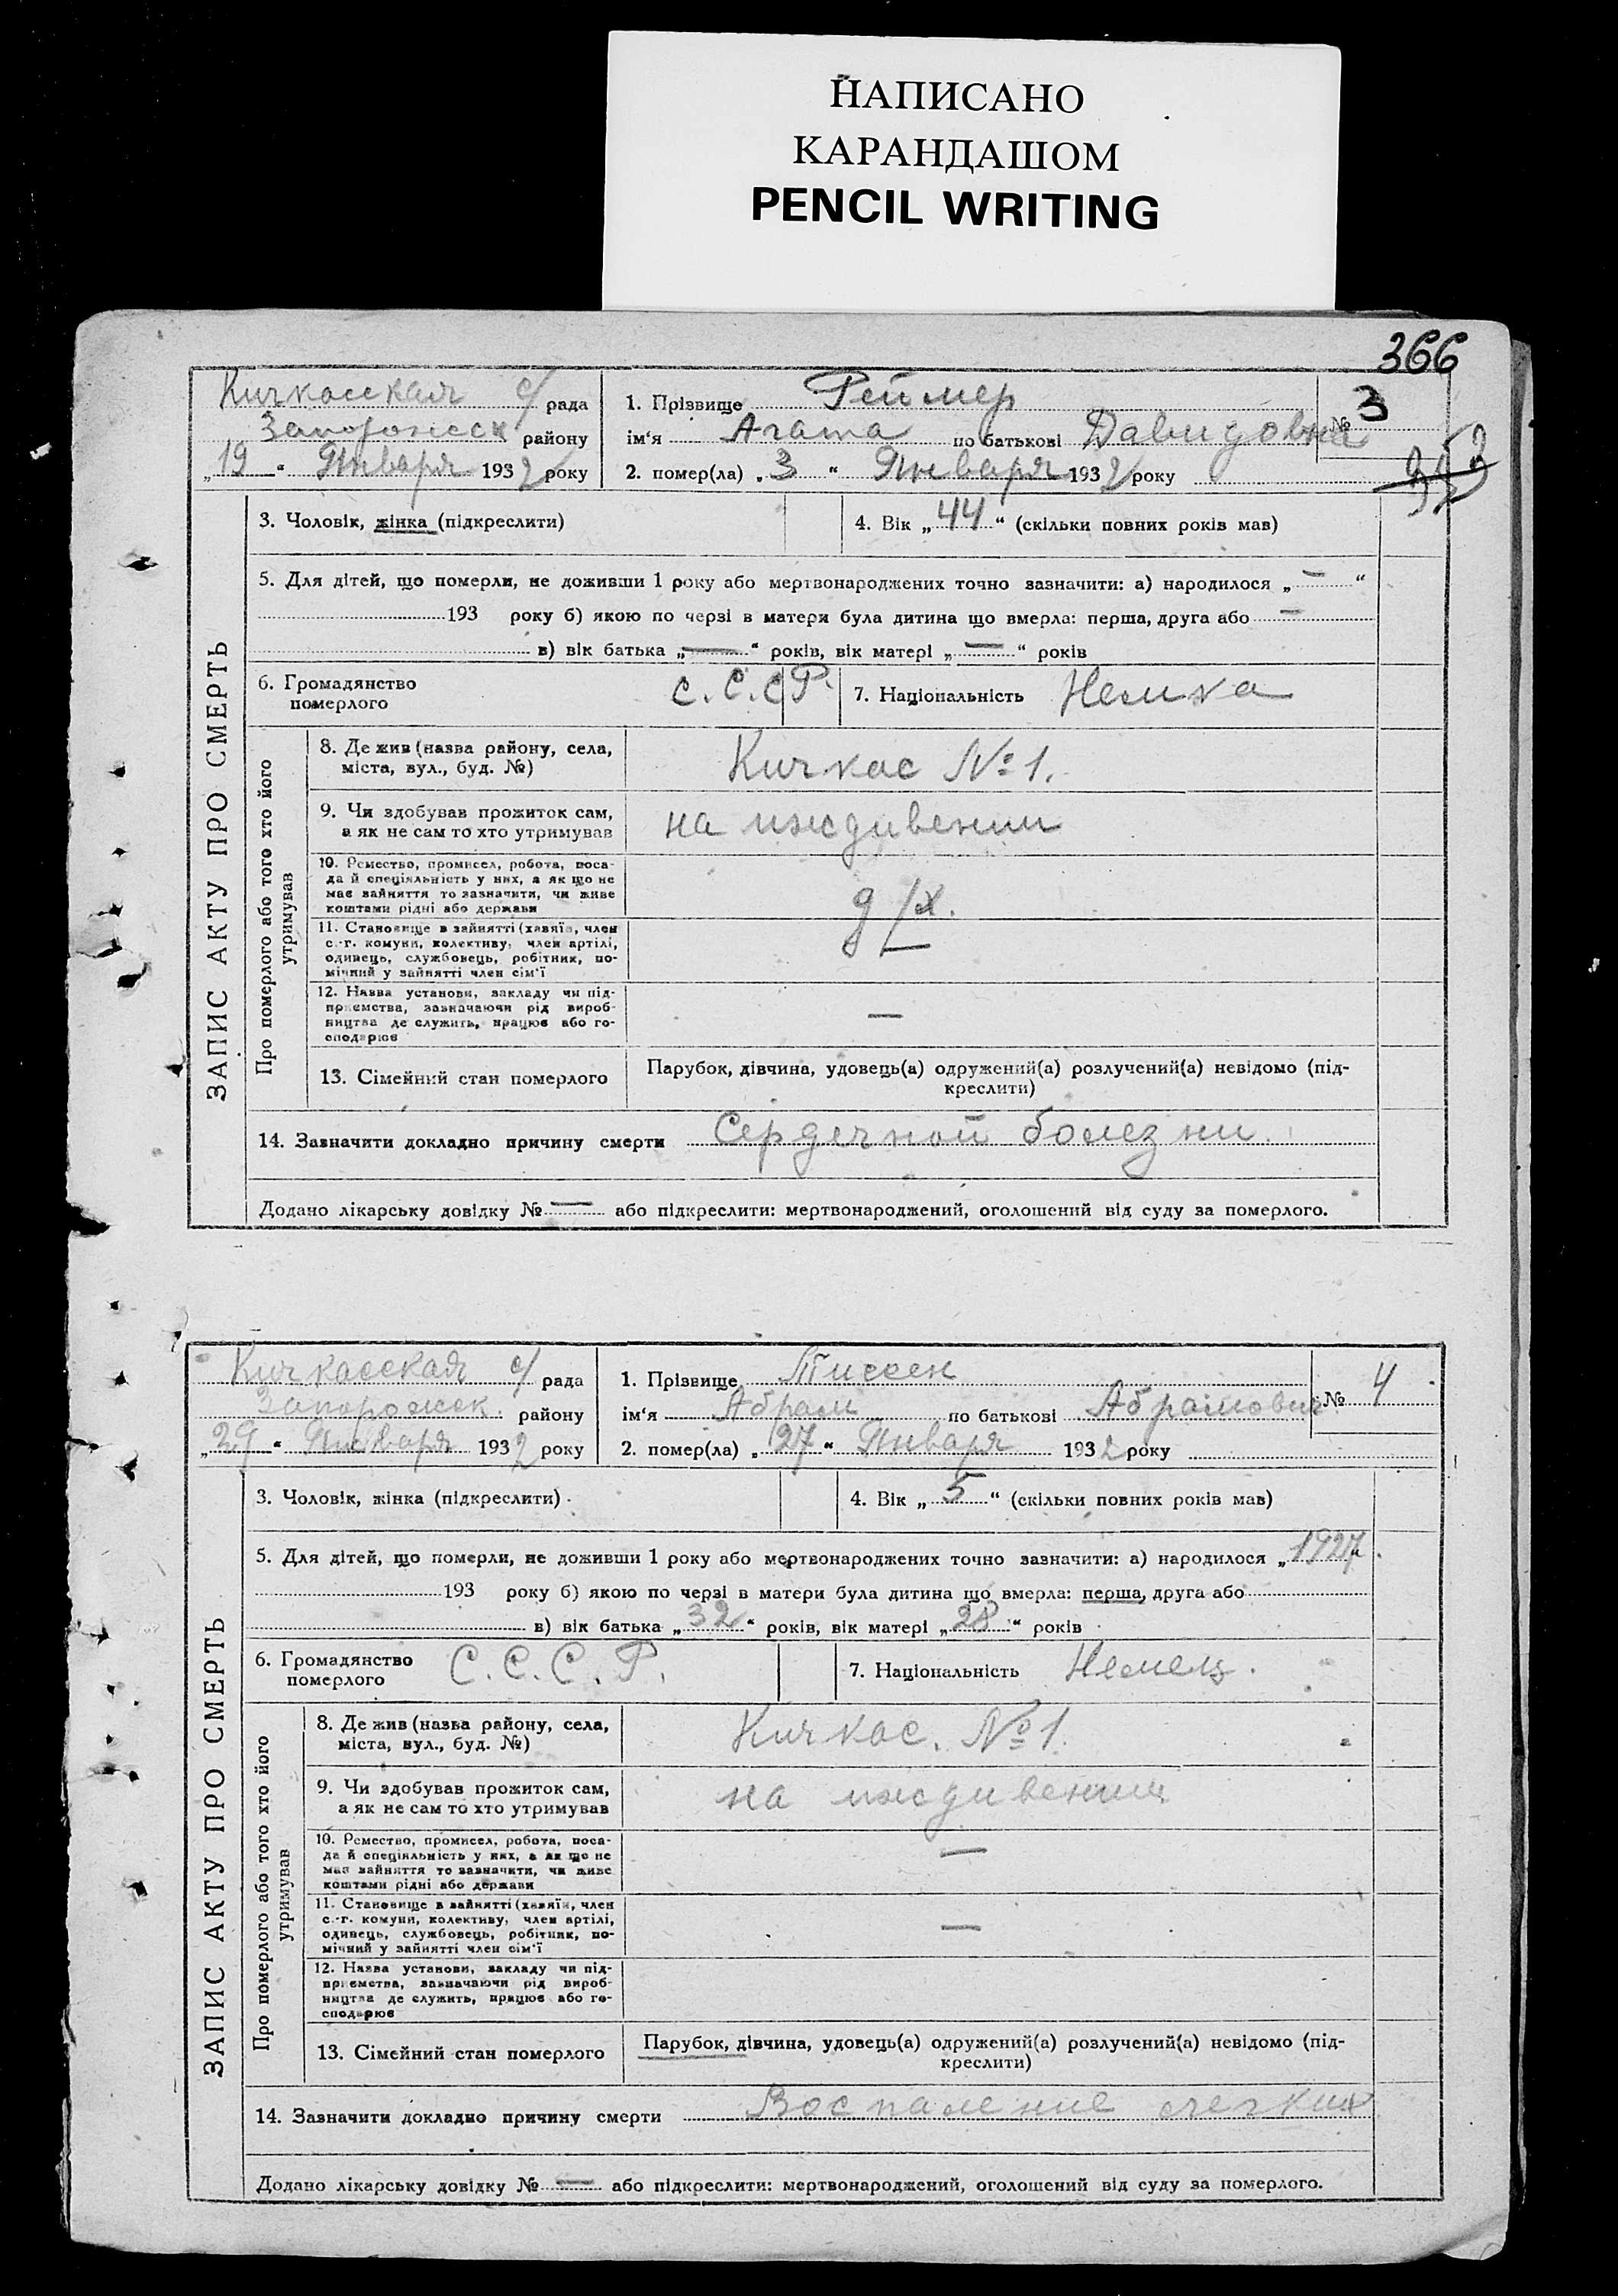 НАПИСАНО
КАРАНДАШОМ
PENCIL WRITING
366
Кичкасская с/ рада
Запорожск району
„19“ Января 1932 року
1. Прізвище Реймер
№ 3
ім'я Агата по батькові Давидовна
2. помер(ла) „3“ Января 1932 року
3. Чоловік, жінка (підкреслити)
4. Вік „44“ (скільки повних років мав)
5. Для дітей, що померли, не доживши 1 року або мертвонароджених точно зазначити: а) народилося „—“
193 року б) якою по черзі в матери була дитина що вмерла: перша, друга або —
в) вік батька „—“ років, вік матері „—“ років
6. Громадянство
померлого
С.С.С.Р.
7. Національність Немка
ЗАПИС АКТУ ПРО СМЕРТЬ
Про померлого або того хто його
утримував
8. Де жив (назва району, села,
міста, вул., буд. №)
Кичкас №1.
9. Чи здобував прожиток сам,
а як не сам то хто утримував
на иждивении
10. Ремество, промисел, робота, поса-
да й спеціяльність у них, а як що не
має зайняття то зазначити, чи живе
коштами рідні або держави
д/х.
11. Становище в зайнятті (хазяїн, член
с.-г. комуни, колективу, член артілі,
одинець, службовець, робітник, по-
мічний у зайнятті член сім'ї
—
12. Назва установи, закладу чи під-
приємства, зазначаючи рід вироб-
ництва де служить, працює або го-
сподарює
—
13. Сімейний стан померлого
Парубок, дівчина, удовець(а) одружений(а) розлучений(а) невідомо (під-
креслити)
14. Зазначити докладно причину смерти Сердечной болезни.
Додано лікарську довідку № — або підкреслити: мертвонароджений, оголошений від суду за померлого.
Кичкасская с/ рада
Запорожск. району
„29“ Января 1932 року
1. Прізвище Тиссен
№ 4
ім'я Абрам по батькові Абрамович
2. помер(ла) „27“ Января 1932 року
3. Чоловік, жінка (підкреслити)
4. Вік „5“ (скільки повних років мав)
5. Для дітей, що померли, не доживши 1 року або мертвонароджених точно зазначити: а) народилося „1927“
193 року б) якою по черзі в матери була дитина що вмерла: перша, друга або
в) вік батька „32“ років, вік матері „28“ років
6. Громадянство
померлого
С.С.С.Р.
7. Національність Немец.
ЗАПИС АКТУ ПРО СМЕРТЬ
Про померлого або того хто його
утримував
8. Де жив (назва району, села,
міста, вул., буд. №)
Кичкас. №1.
9. Чи здобував прожиток сам,
а як не сам то хто утримував
на иждивении
10. Ремество, промисел, робота, поса-
да й спеціяльність у них, а як що не
має зайняття то зазначити, чи живе
коштами рідні або держави
—
11. Становище в зайнятті (хазяїн, член
с.-г. комуни, колективу, член артілі,
одинець, службовець, робітник, по-
мічний у зайнятті член сім'ї
—
12. Назва установи, закладу чи під-
приємства, зазначаючи рід вироб-
ництва де служить, працює або го-
сподарює
13. Сімейний стан померлого
Парубок, дівчина, удовець(а) одружений(а) розлучений(а) невідомо (під-
креслити)
14. Зазначити докладно причину смерти Воспаление
Додано лікарську довідку № — або підкреслити: мертвонароджений, оголошений від суду за померлого.